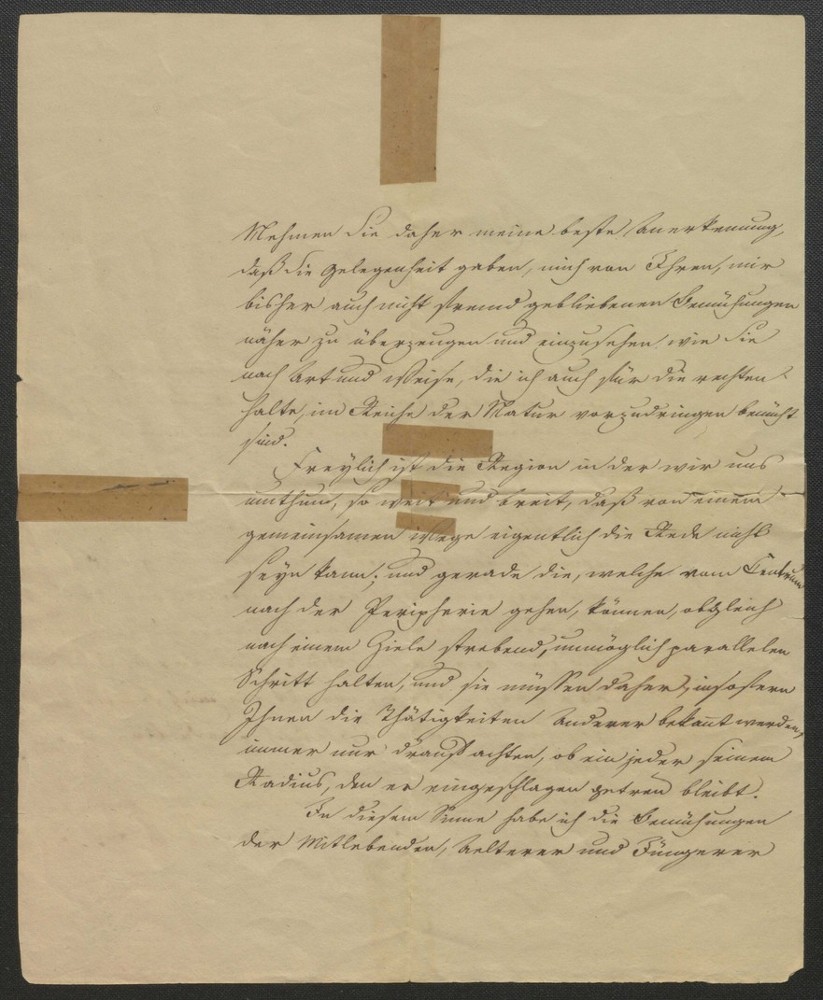 Nehmen Sie daher meine beste Anerkennung,
daß Sie Gelegenheit gaben, mich von Ihren, mir
bisher auch nicht fremd gebliebenen Bemühungen
näher zu überzeugen und einzusehen, wie Sie
nach Art und Weise, die ich auch für die rechten
halte, im Reiche der Natur vorzudringen bemüht
sind.
Freylich ist die Region in der wir uns
umthun, so weit und breit, daß von einem
gemeinsamen Wege eigentlich die Rede nicht
seyn kann; und gerade die, welche vom Centrum
nach der Peripherie gehen, können, obgleich
nach einem Ziele strebend, unmöglich parallelen
Schritt halten, und sie müssen daher, insofern
Ihnen die Thätigkeiten Anderer bekannt werden,
immer nur drauf achten, ob ein jeder seinem
Radius, den er eingeschlagen getreu bleibt.
In diesem Sinne habe ich die Bemühungen
der Mitlebenden, Aelterer und Jüngerer